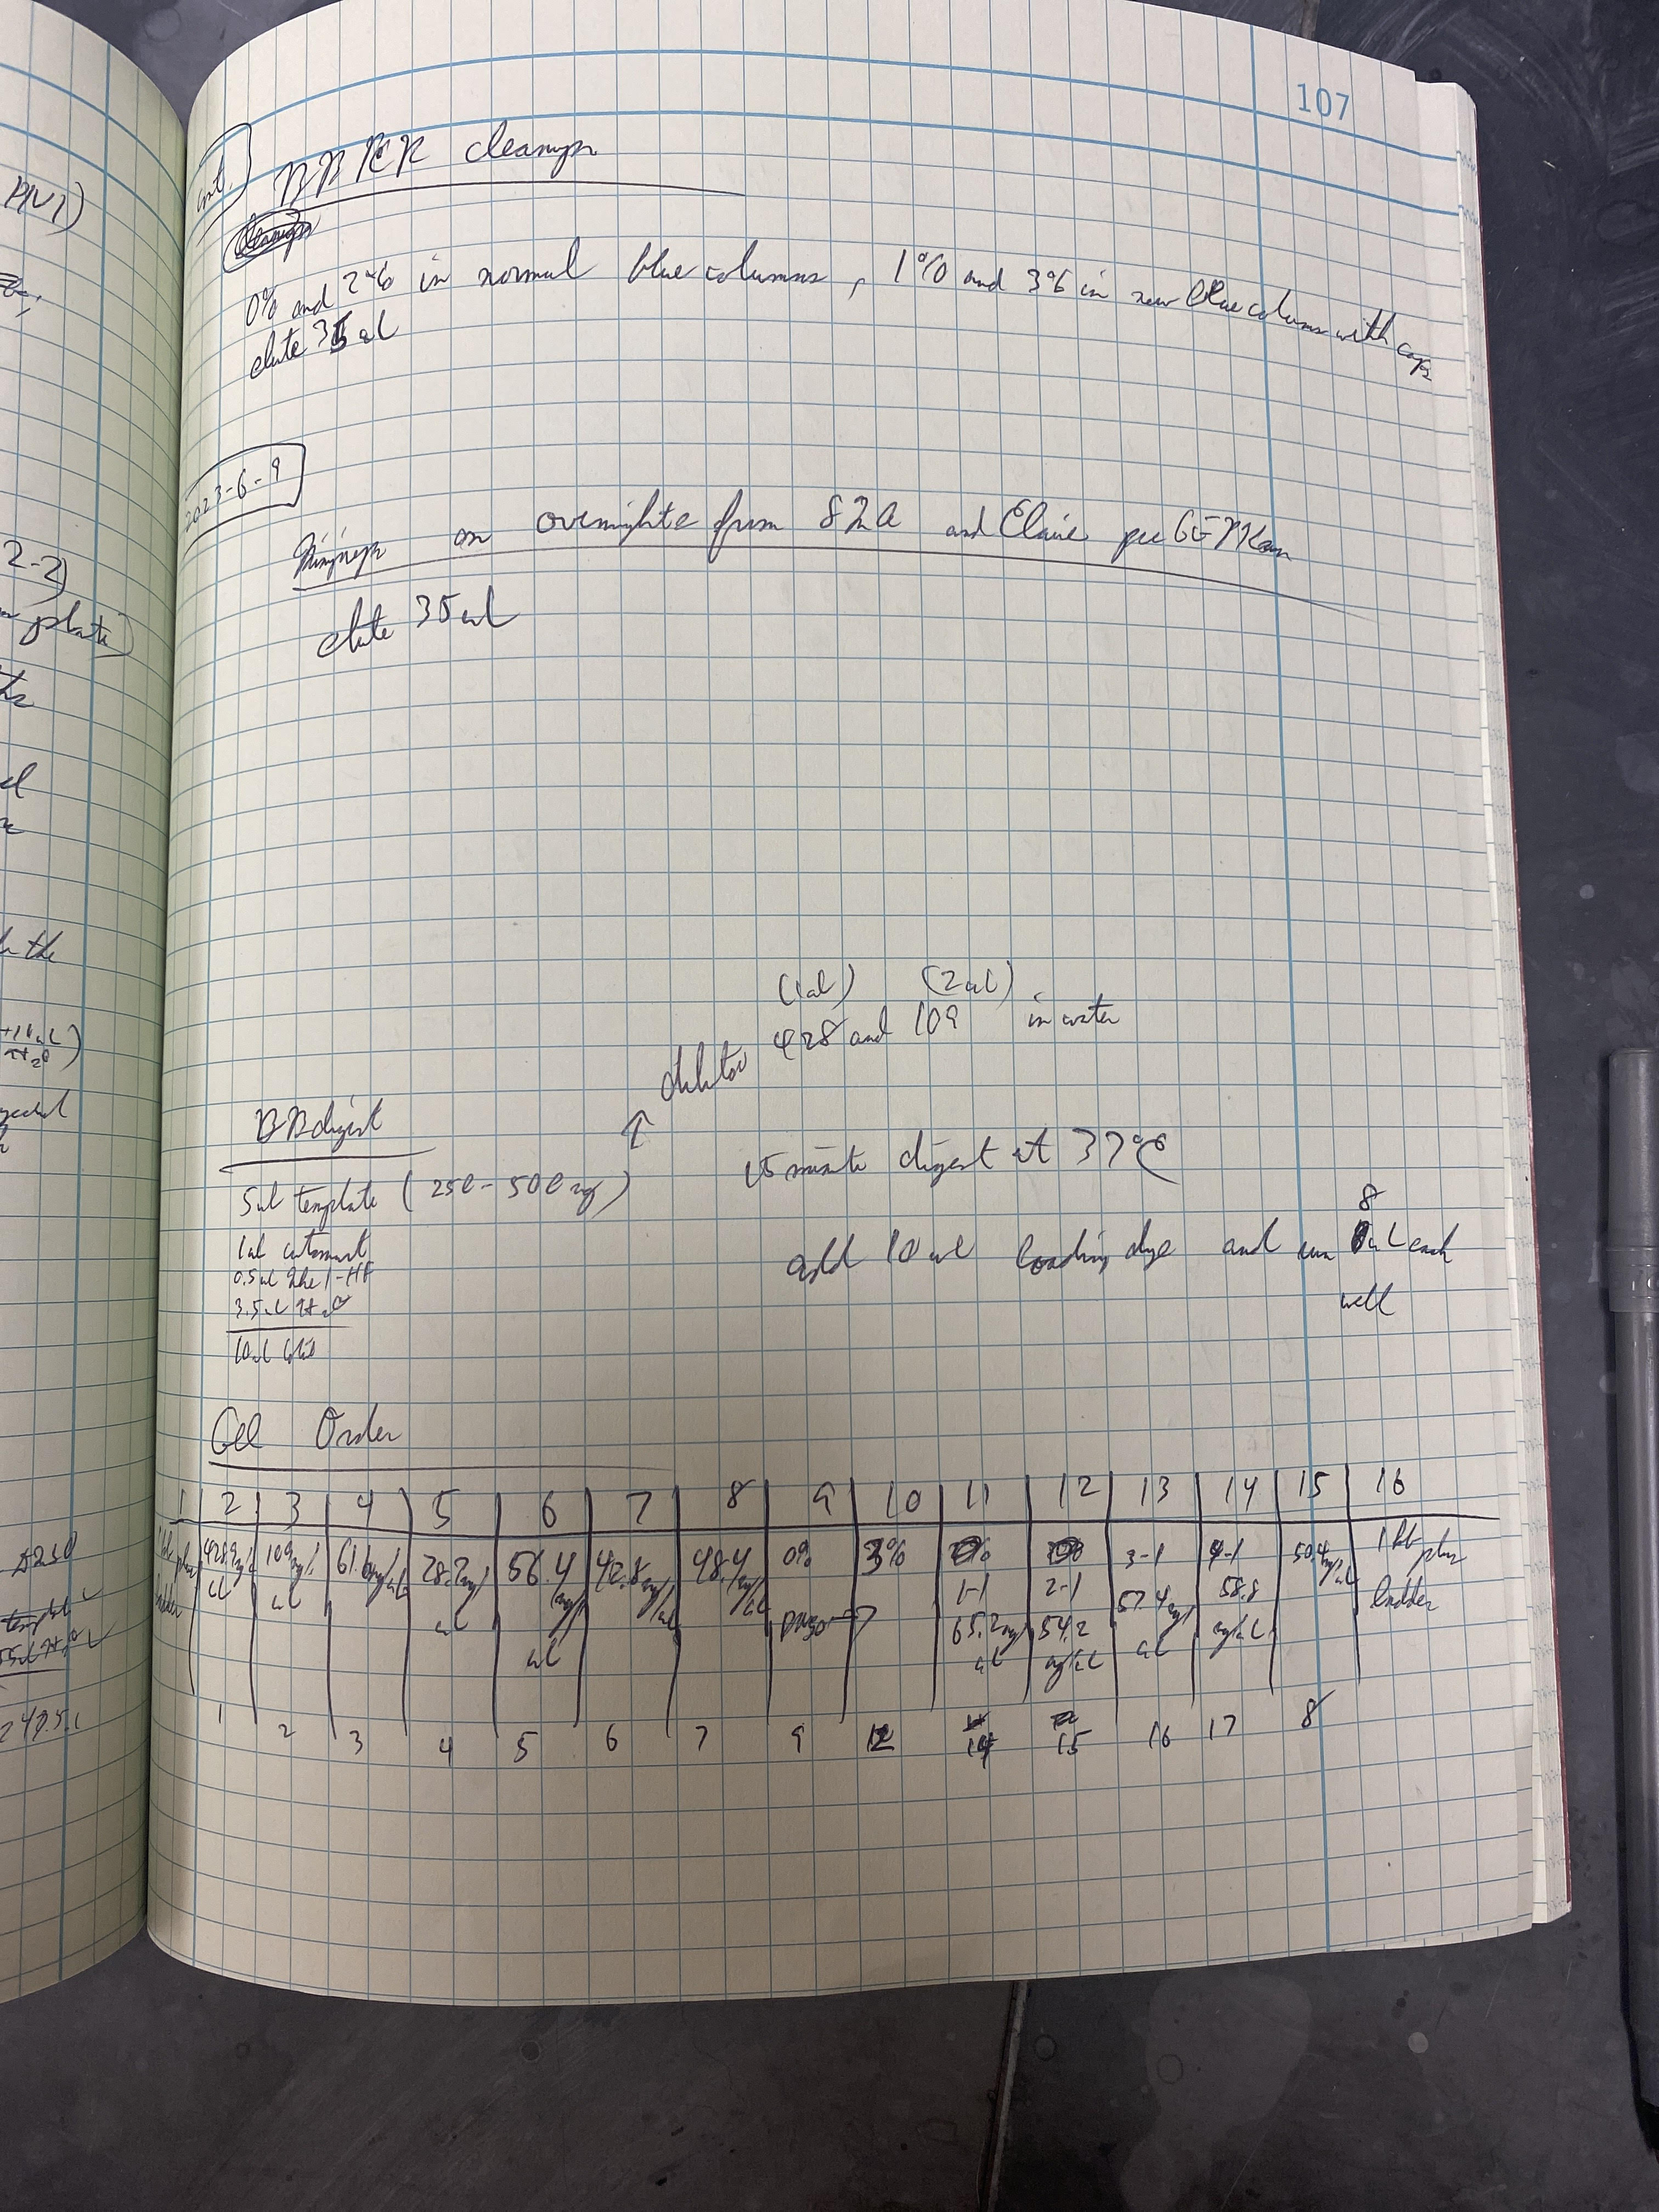 107
cont.
BB PCR cleanup
0% and 2% in normal blue columns, 1% and 3% in new blue columns with caps
elute 35 ul
2023-6-9
Miniprep on overnights from 82A and Elaine
elute 35 ul
(1ul) (2ul)
dilutes 428 and 109 in water
↑
BB digest
5ul template (250-500 ng)
15 minute digest at 37°C
1ul cutsmart
0.5ul Nhe1-HF
3.5ul H2O
10ul total
8
add 10 ul loading dye and run ul each
well
Gel Order
1 2 3 4 5 6 7 8 9 10 11 12 13 14 15 16
1kb plus ladder 428.9ng/ul 109ng/ul 61.6ng/ul 28.2ng/ul 56.4ng/ul 42.8ng/ul 48.4ng/ul 0% 3% 1-1 65.2ng/ul 2-1 54.2ng/ul 3-1 57.4ng/ul 4-1 58.8ng/ul 50.4ng/ul 1kb plus ladder
1 2 3 4 5 6 7 9 12 14 15 16 17 8
PN1)
2-2)
plate)
the